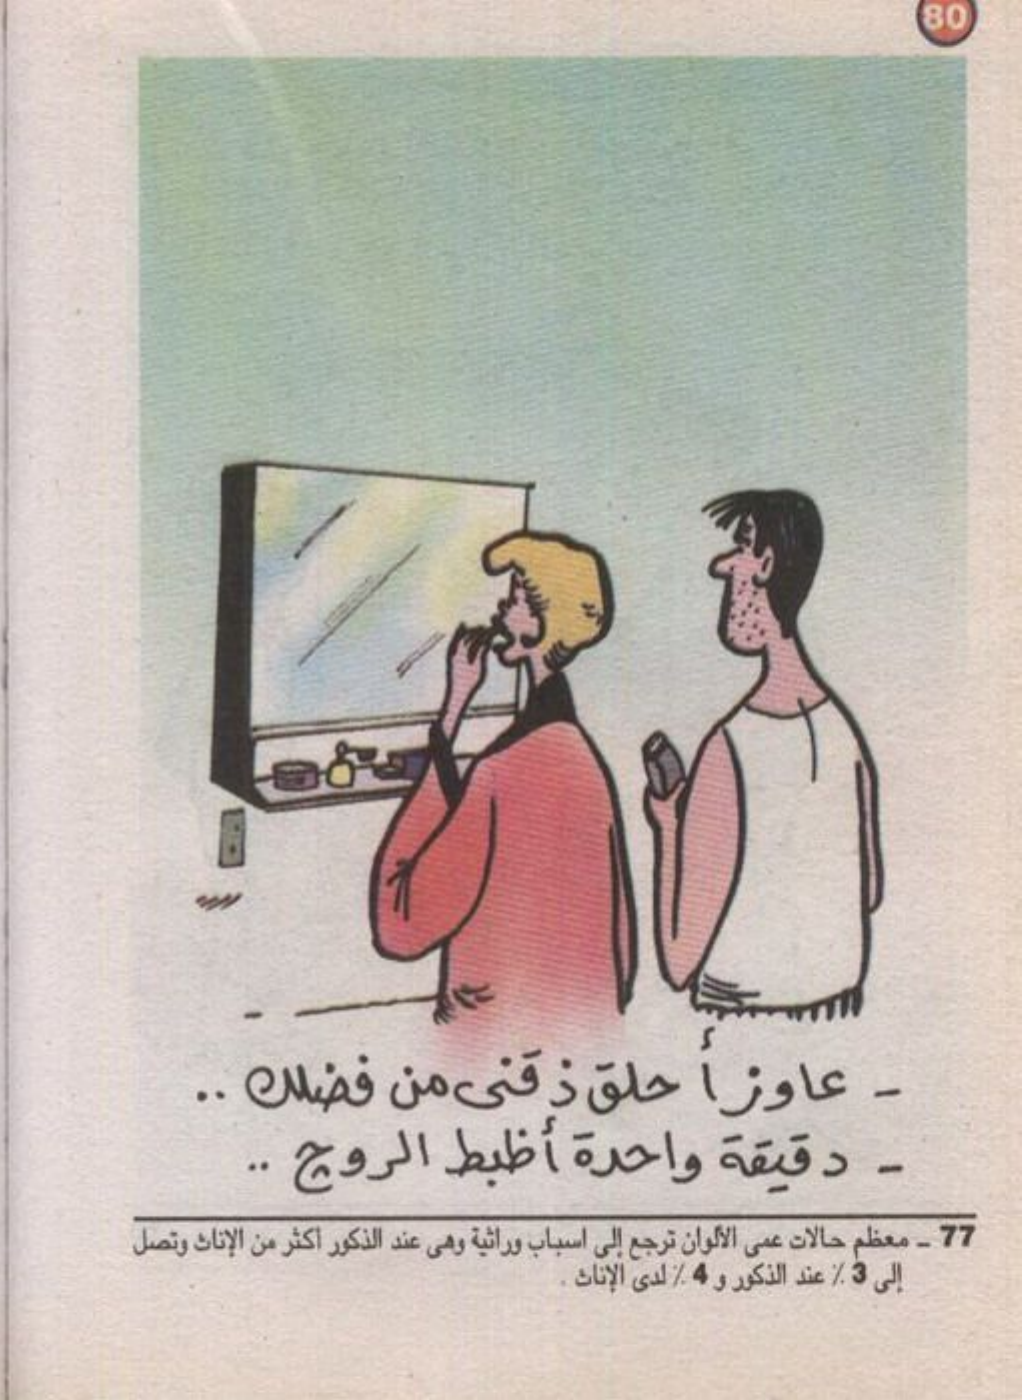 80
- عاوز أحلق ذقنى من فضلك ..
- دقيقة واحدة أظبط الروج ..
77 - معظم حالات عمى الألوان ترجع إلى اسباب وراثية وهى عند الذكور أكثر من الإناث وتصل
إلى 3 ٪ عند الذكور و 4 ٪ لدى الإناث .